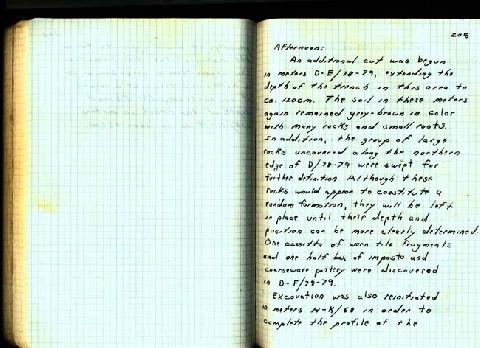 203
Afternoon:
An additional cut was begun
in meters D-E/78-79, extending the
depth of the trench in this area to
ca. 120cm. The soil in these meters
again remained grey-brown in color
with many rocks and small roots.
In addition, the group of large
rocks uncovered along the northern
edge of D/78-79 were swept for
further definition. Although these
rocks would appear to constitute a
random formation, they will be left
in place until their depth and
position can be more clearly determined.
One cassetta of worn tile fragments
and one half box of impasto and
coarseware pottery were discovered
in D-E/78-79.
Excavation was also reinitiated
in meters in order to
complete the profile of the